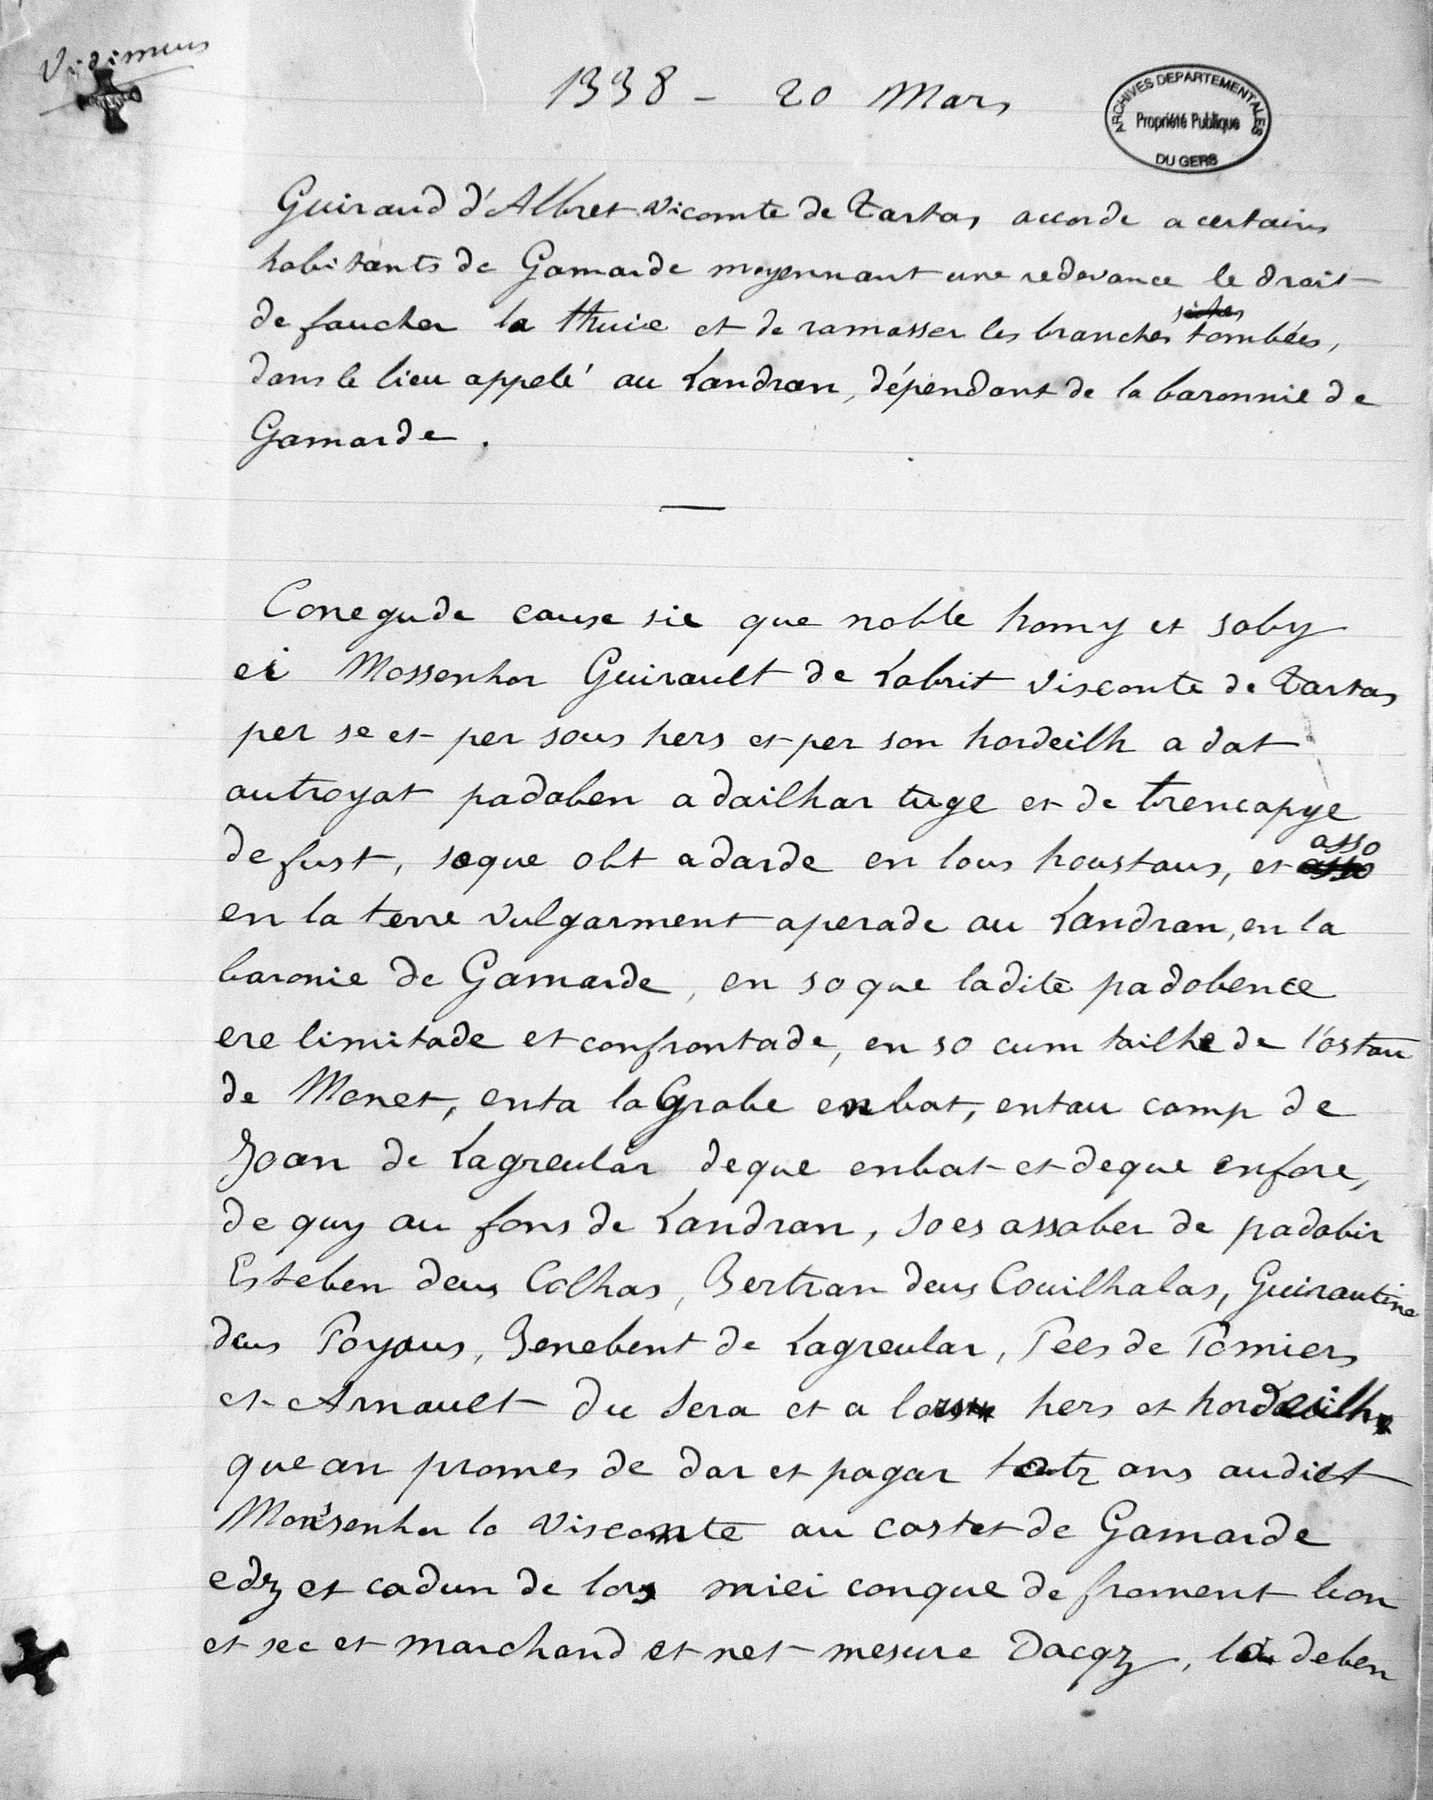 Vidimus
1338 - 20 Mars
ARCHIVES DEPARTEMENTALES
Propriété Publique
DU GERS
Guiraud d'Albret vicomte de Tartas accorde a certains
habitants de Gamarde moyennant une redevance le droit
de faucher la thuie et de ramasser les branches sèches tombées,
dans le lieu appelé au Landran, dépendant de la baronnie de
Gamarde.
Conegude cause sie que noble homy et saby
ei Mossenhor Guirault de Labrit Visconte de Tartas
per se et per sous hers et per son hordeilh a dat
autroyat padoben a dailhar tuge et de trencapye
de fust, soque obt adarde en lous houstaus, et asso
en la terre vulgarment aperade au Landran, en la
baronie de Gamarde, en soque ladite padobence
ere limitade et confrontade, en so cum tailhe de l'ostau
de Monet, enta la Grabe enbat, entau camp de
Joan de Lagreular deque enbat et deque enfore,
de quy au fons de Landran, so es assaber de padobir
Esteben deus Colhas, Bertran deus Couilhalas, Guirautine
deus Poyaus, Benebent de Lagreular, Pees de Pomiers
et Arnault du Sera et a lors hers et hordeilh
que an promes de dar et pagar totz ans audict
Monsenhor lo Visconte au castet de Gamarde
edz et cadun de lors miei conque de froment bon
et sec et marchand et net mesure Dacqz, lo deben